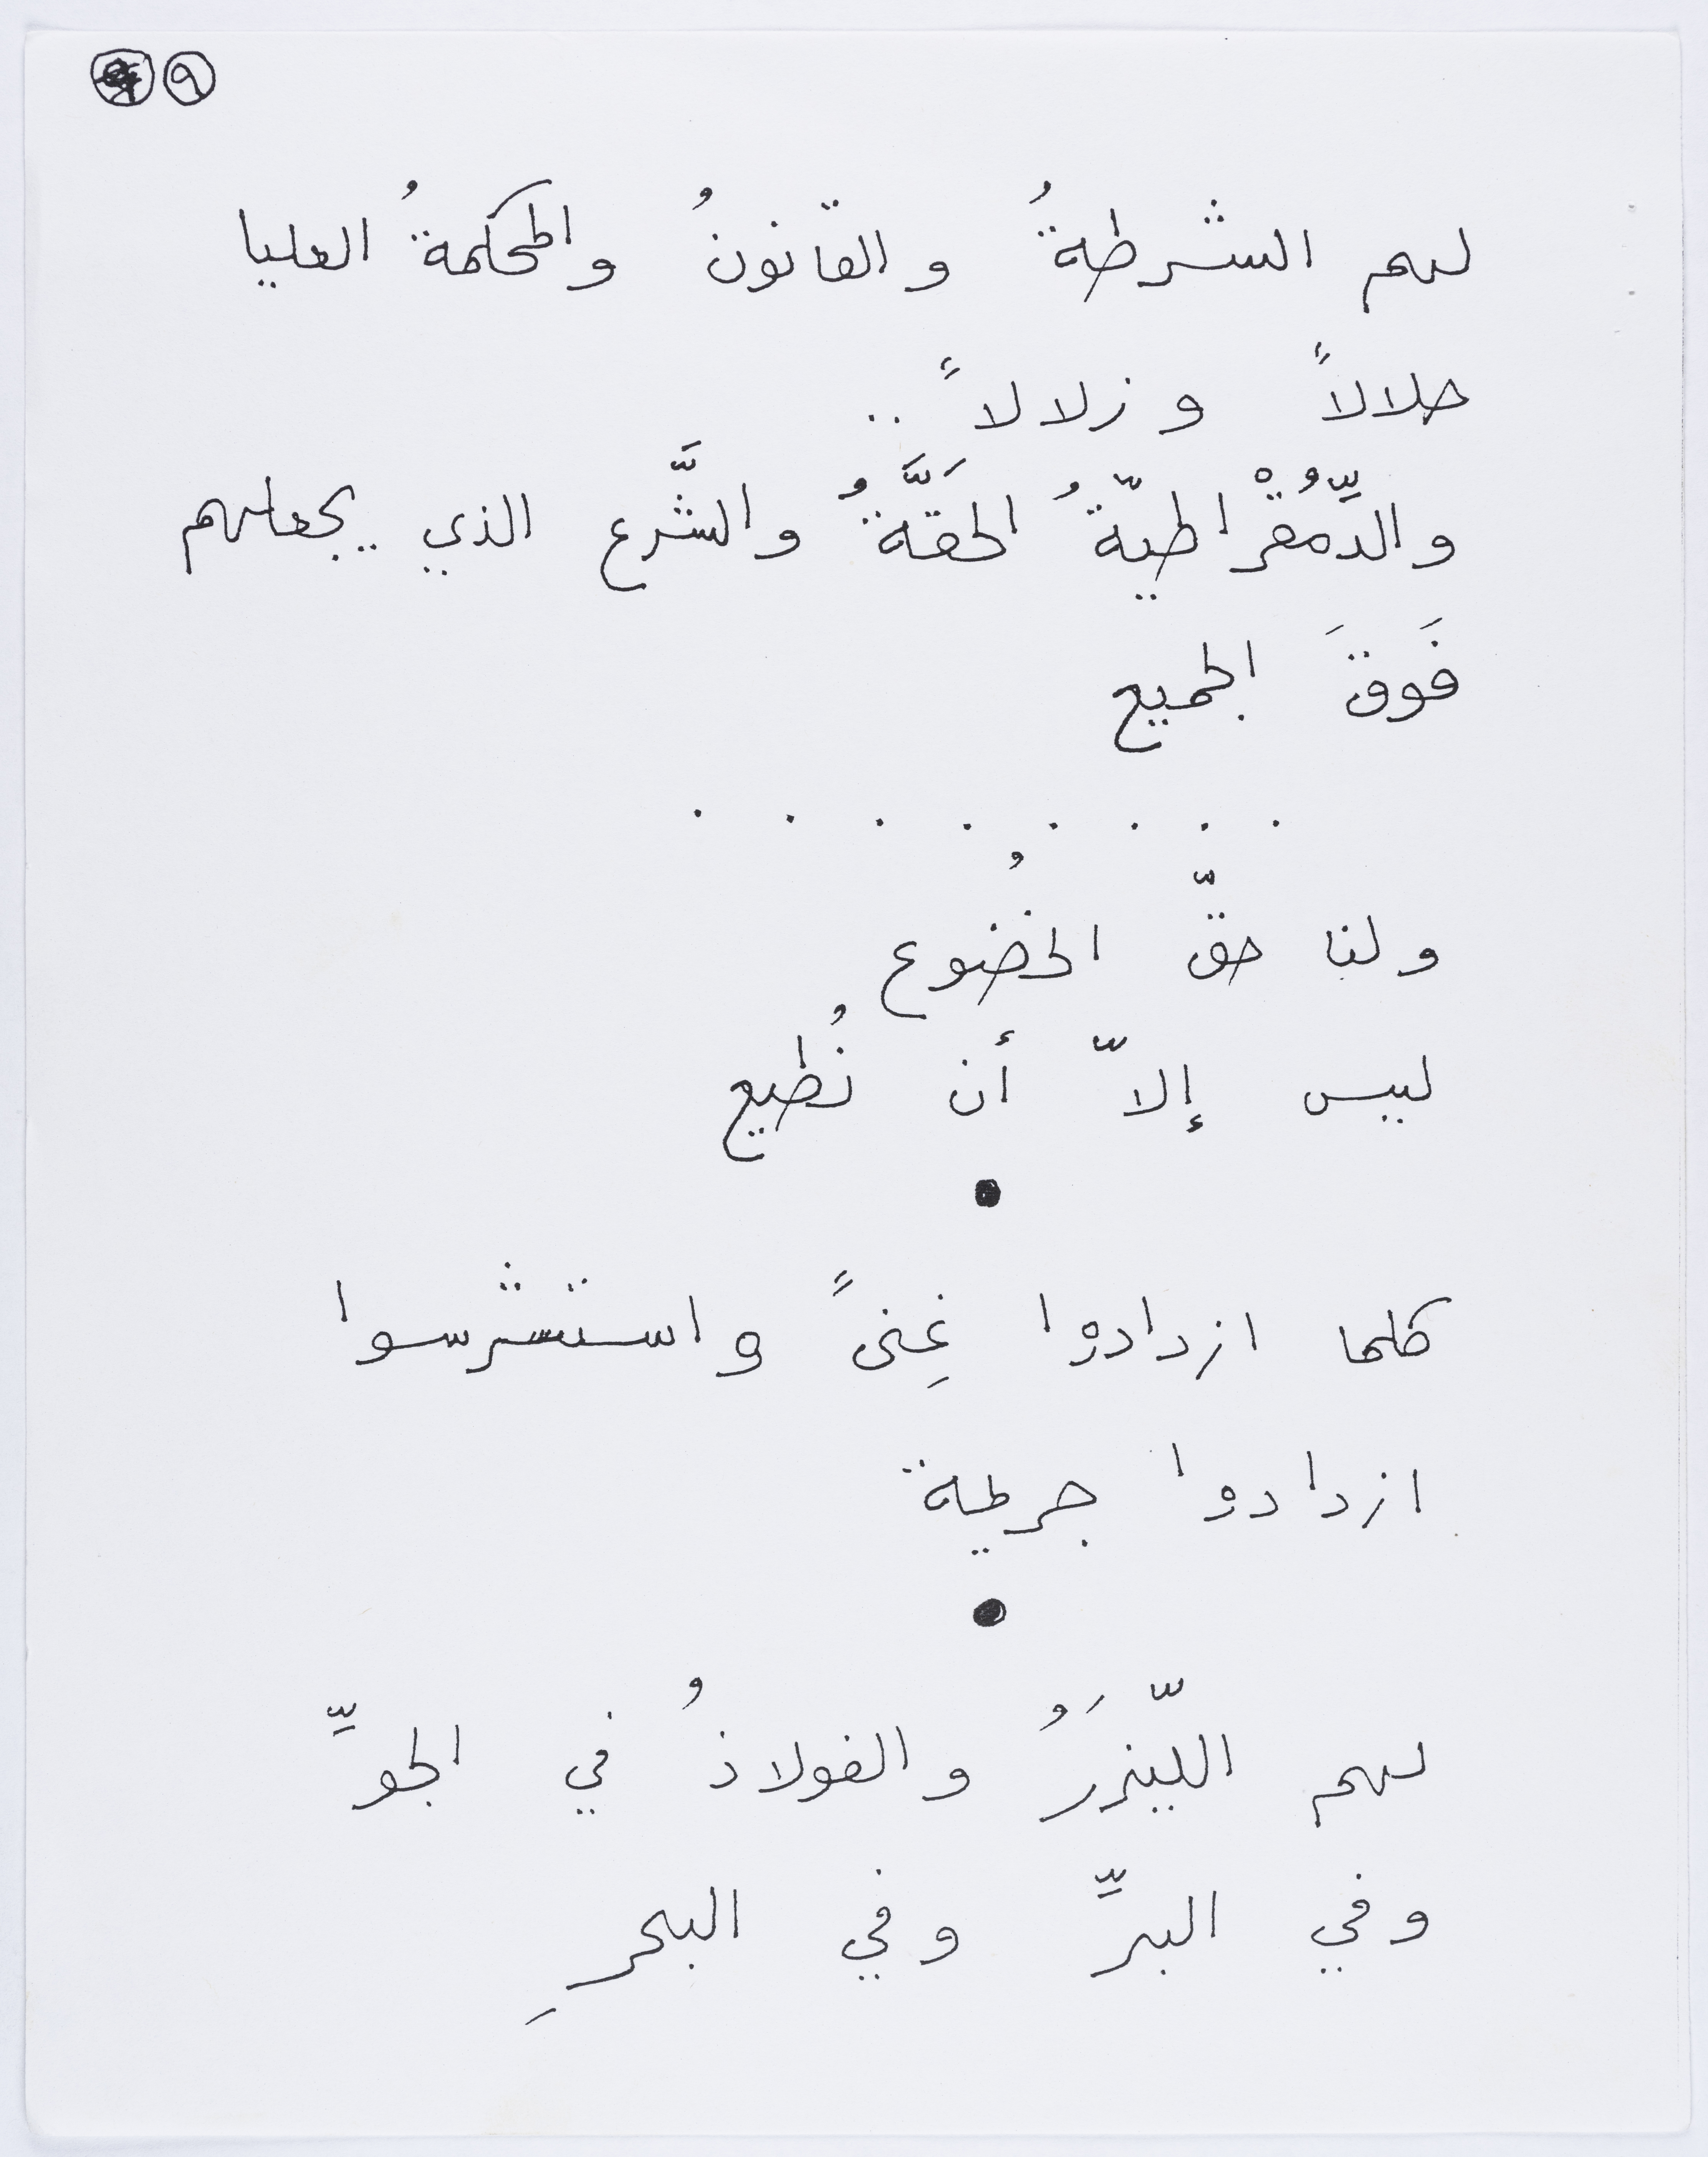 ٩
لهم الشرطةُ والقانونُ والمحكمةُ العليا
حلالاً وزلالاً ..
والدِّمُقْراطيّةُ الحَقَّةُ والشَّرع الذي يجعلهم
فَوقَ الجميع
. . . . . . . .
ولنا حقّ الخضُوع
ليس إلاّ أن نُطيع
●
كلما ازدادوا غِنىً واستشرسوا
ازدادوا جريمة
●
لهم اللّيزَرُ والفولاذُ في الجوِّ
وفي البرِّ وفي البحرِ